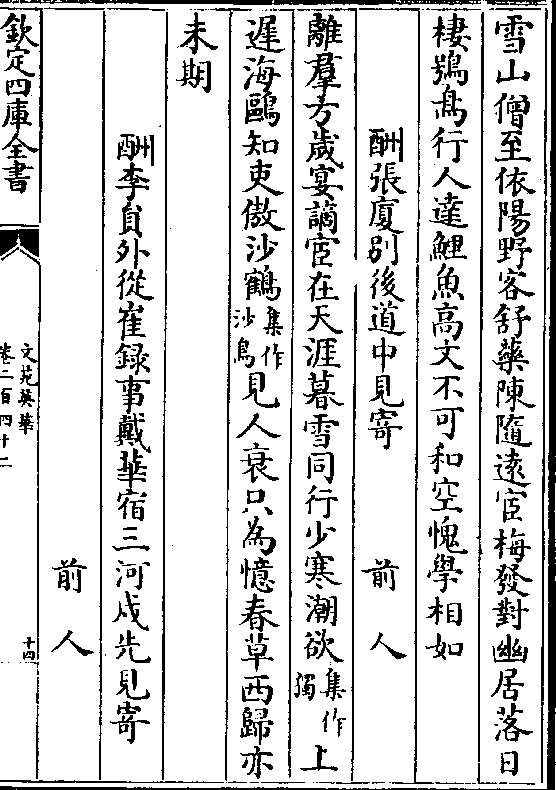 雪山僧至依陽野客舒藥陳隨遠宦梅發對幽居落日
棲鴞鳥行人達鯉魚高文不可和空愧學相如
酬張廈別後道中見寄　前人
離羣方歲宴謫宦在天涯暮雪同行少寒潮欲集作獨上
遲海鷗知吏傲沙鶴集作沙鳥見人衰只為憶春草西歸亦
未期
酬李員外從崔錄事載華宿三河戍先見寄
前人
欽定四庫全書
文苑英華
卷二百四十二
十四